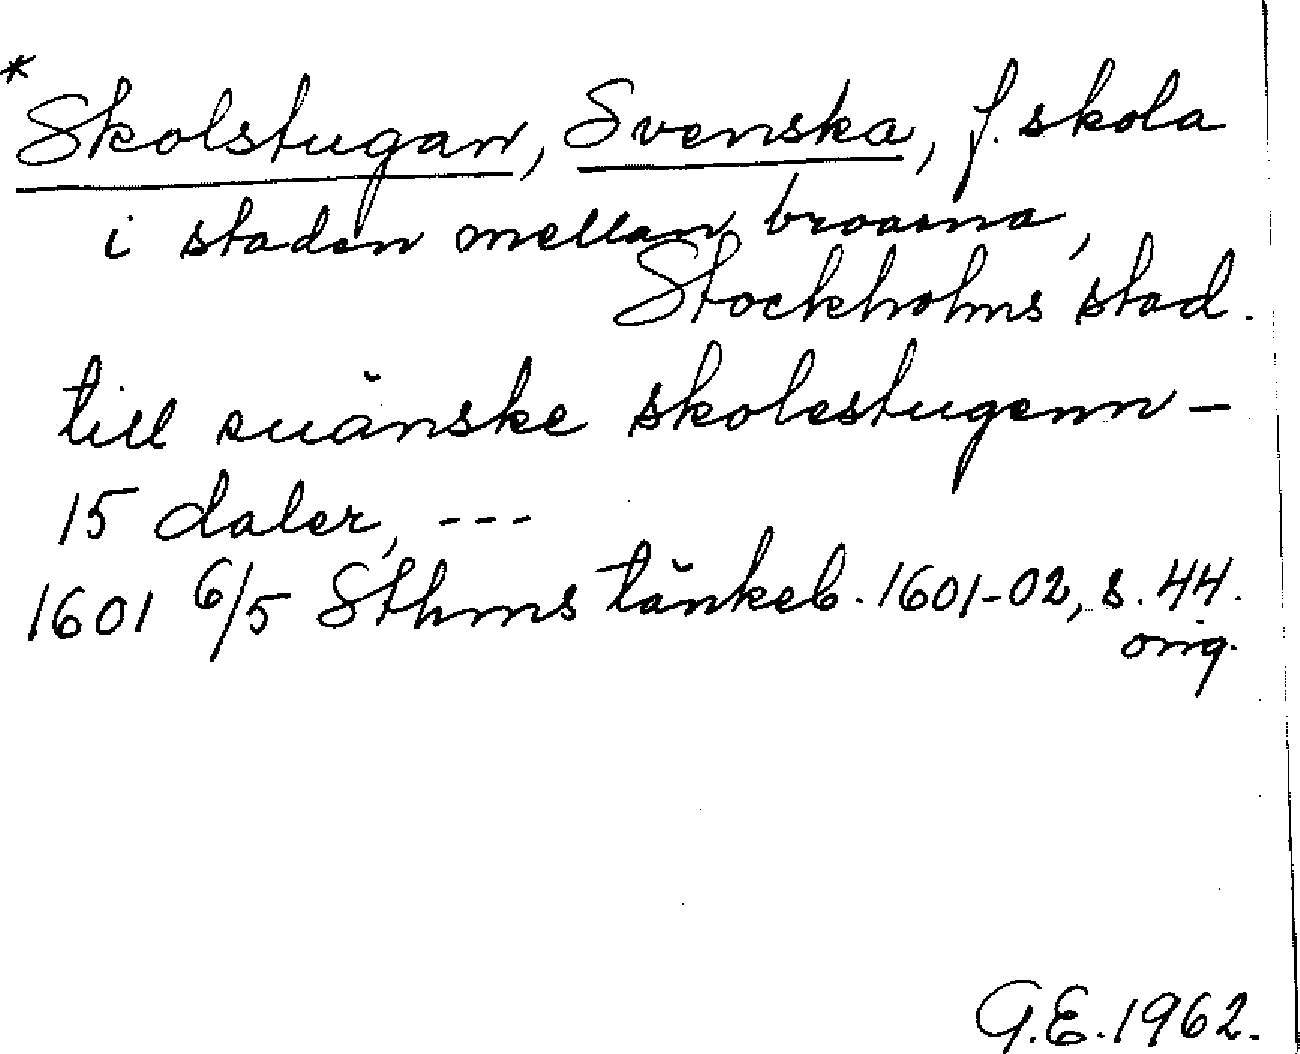 * Skolstugan, Svenska, f. skola
i staden mellan broarna,
Stockholms stad.
till suänske skolestugenn –
15 daler, ---
1601 6/5 Sthms tänkeb. 1601-02, s. 44.
orig.
G.E. 1962.